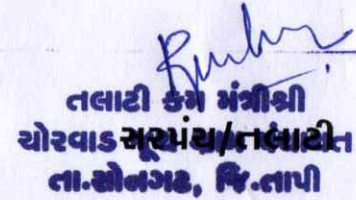 તલાટી કમ મંત્રીશ્રી
ચોરવાડ સરપંચ/તલાટી
તા.સોનગઢ, જિ.તાપી